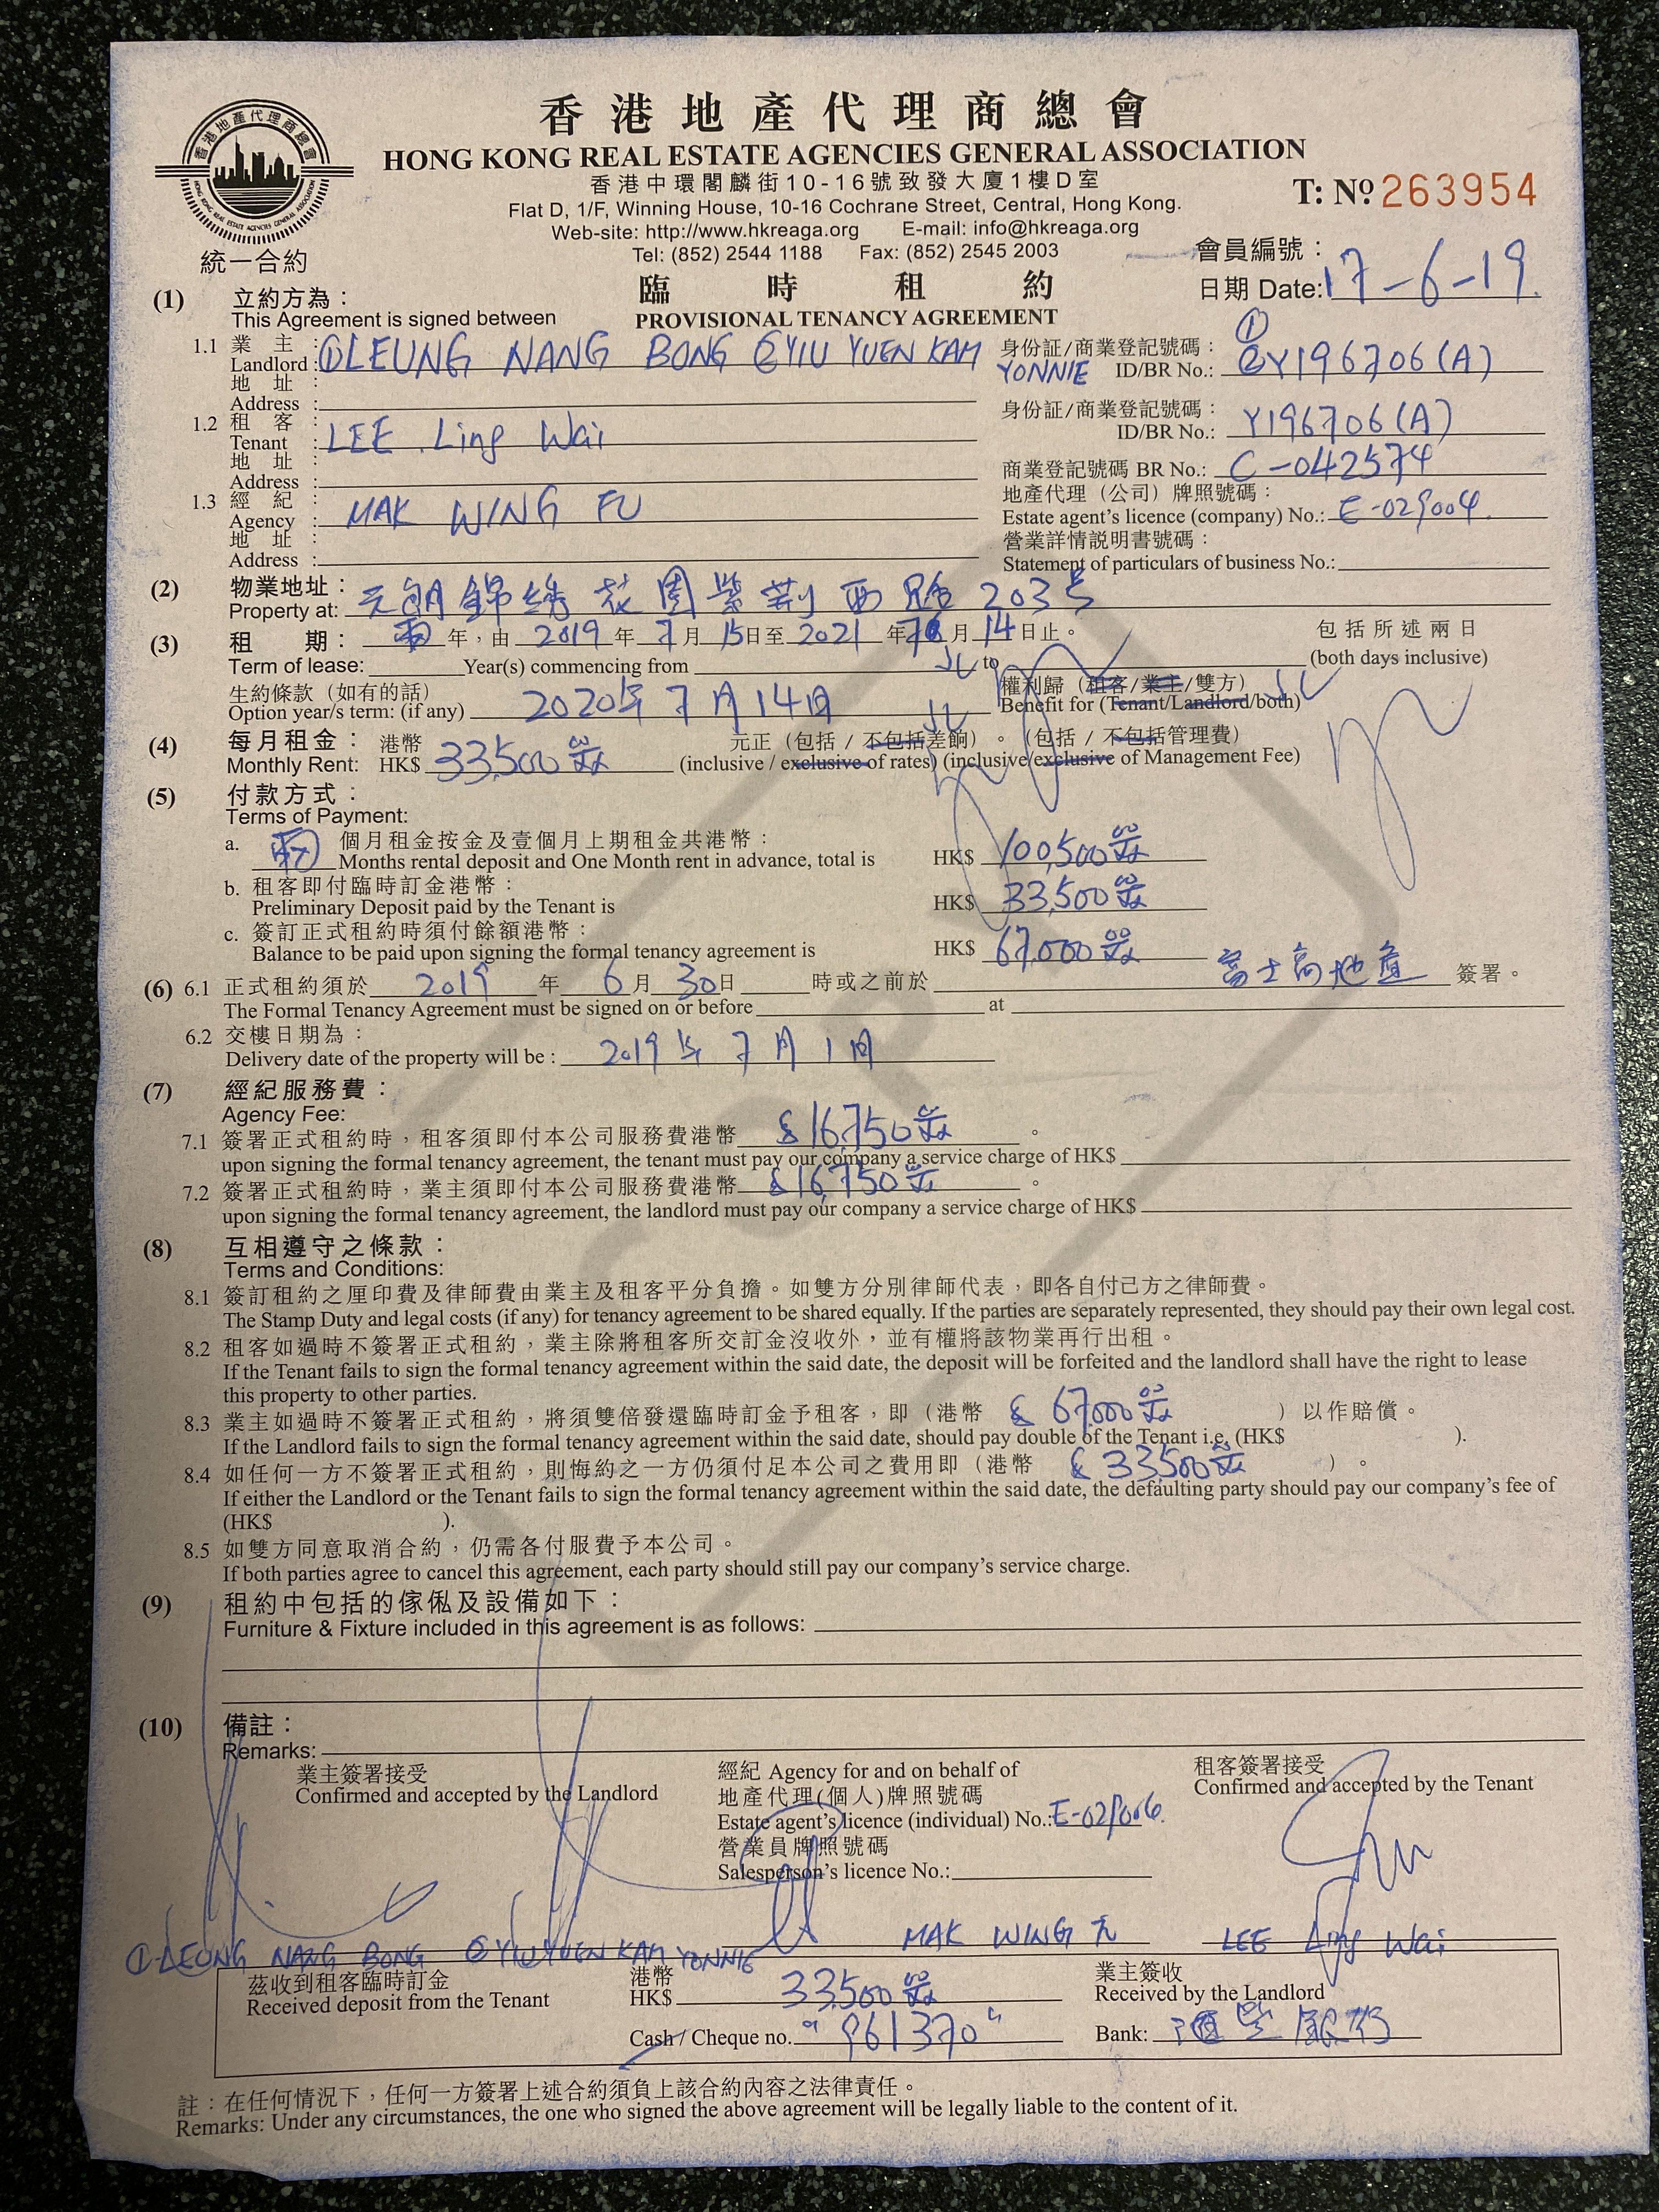 香港地產代理商總會
HONG KONG REAL ESTATE AGENCIES GENERAL ASSOCIATION
香港中環閣麟街10-16號致發大廈1樓D室
Flat D, 1/F, Winning House, 10-16 Cochrane Street, Central, Hong Kong.
Web-site: http://www.hkreaga.org E-mail: info@hkreaga.org
Tel: (852) 2544 1188 Fax: (852) 2545 2003
T: Nº 263954
統一合約
會員編號：
日期 Date: 17-6-19
臨時租約
PROVISIONAL TENANCY AGREEMENT
(1) 立約方為：
This Agreement is signed between
1.1 業主：
Landlord: ①LEUNG NANG BONG ②YIU YUEN KAM YONNIE
身份証/商業登記號碼： ①
ID/BR No.: ②Y196706(A)
地址：
Address :
1.2 租客：
Tenant : LEE Ling Wai
身份証/商業登記號碼：
ID/BR No.: Y196706(A)
地址：
Address :
商業登記號碼 BR No.: C-042574
1.3 經紀：
Agency : MAK WING FU
地產代理（公司）牌照號碼：
Estate agent's licence (company) No.: E-029004
地址：
Address :
營業詳情説明書號碼：
Statement of particulars of business No.:
(2) 物業地址：
Property at: 元朗錦綉花園紫荊西路203号
(3) 租期： 兩年，由 2019 年 7 月 15 日至 2021 年 月 14 日止。 包括所述兩日
Term of lease: Year(s) commencing from to (both days inclusive)
生約條款（如有的話） 權利歸（租客/業主/雙方）
Option year/s term: (if any) 2020年7月14日 Benefit for (Tenant/Landlord/both)
(4) 每月租金： 港幣 元正（包括 / 不包括差餉）。（包括 / 不包括管理費）
Monthly Rent: HK$ 33,500 (inclusive / exclusive of rates) (inclusive/exclusive of Management Fee)
(5) 付款方式：
Terms of Payment:
a. 兩 個月租金按金及壹個月上期租金共港幣：
Months rental deposit and One Month rent in advance, total is HK$ 100,500
b. 租客即付臨時訂金港幣：
Preliminary Deposit paid by the Tenant is HK$ 33,500
c. 簽訂正式租約時須付餘額港幣：
Balance to be paid upon signing the formal tenancy agreement is HK$ 67,000
(6) 6.1 正式租約須於 2019 年 6 月 30 日 時或之前於 富士高地產 簽署。
The Formal Tenancy Agreement must be signed on or before at
6.2 交樓日期為：
Delivery date of the property will be : 2019年7月1日
(7) 經紀服務費：
Agency Fee:
7.1 簽署正式租約時，租客須即付本公司服務費港幣 $16,750 。
upon signing the formal tenancy agreement, the tenant must pay our company a service charge of HK$
7.2 簽署正式租約時，業主須即付本公司服務費港幣 $16,750 。
upon signing the formal tenancy agreement, the landlord must pay our company a service charge of HK$
(8) 互相遵守之條款：
Terms and Conditions:
8.1 簽訂租約之厘印費及律師費由業主及租客平分負擔。如雙方分別律師代表，即各自付己方之律師費。
The Stamp Duty and legal costs (if any) for tenancy agreement to be shared equally. If the parties are separately represented, they should pay their own legal cost.
8.2 租客如過時不簽署正式租約，業主除將租客所交訂金沒收外，並有權將該物業再行出租。
If the Tenant fails to sign the formal tenancy agreement within the said date, the deposit will be forfeited and the landlord shall have the right to lease
this property to other parties.
8.3 業主如過時不簽署正式租約，將須雙倍發還臨時訂金予租客，即（港幣 $ 67,000 ）以作賠償。
If the Landlord fails to sign the formal tenancy agreement within the said date, should pay double of the Tenant i.e. (HK$ ).
8.4 如任何一方不簽署正式租約，則悔約之一方仍須付足本公司之費用即（港幣 $ 33,500 ）。
If either the Landlord or the Tenant fails to sign the formal tenancy agreement within the said date, the defaulting party should pay our company's fee of
(HK$ ).
8.5 如雙方同意取消合約，仍需各付服費予本公司。
If both parties agree to cancel this agreement, each party should still pay our company's service charge.
(9) 租約中包括的傢俬及設備如下：
Furniture & Fixture included in this agreement is as follows:
(10) 備註：
Remarks:
業主簽署接受
Confirmed and accepted by the Landlord
經紀 Agency for and on behalf of
地產代理(個人)牌照號碼
Estate agent's licence (individual) No.:
營業員牌照號碼
Salesperson's licence No.:
租客簽署接受
Confirmed and accepted by the Tenant
①LEUNG NANG BONG ②YIU YUEN KAM YONNIE
MAK WING
LEE Ling Wai
茲收到租客臨時訂金
Received deposit from the Tenant
港幣
HK$ 33,500
業主簽收
Received by the Landlord
Cash / Cheque no. "961370"
Bank: 恒生銀行
註：在任何情況下，任何一方簽署上述合約須負上該合約內容之法律責任。
Remarks: Under any circumstances, the one who signed the above agreement will be legally liable to the content of it.